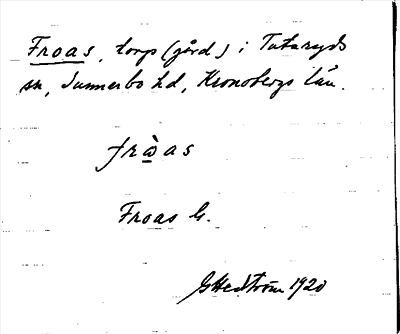 Froas, torp (gård) i Tutaryds
sn, Sunnerbo hd, Kronobergs län.
fròas
Froas G.
G Hedström 1920